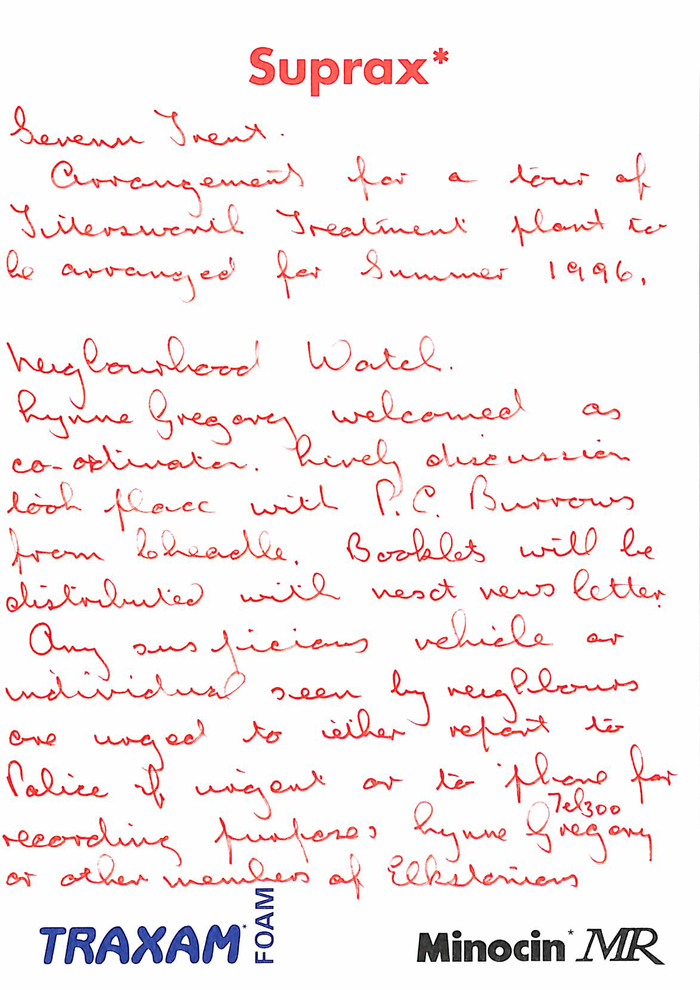 Suprax*
Severn Trent.
Arrangements for a tour of
Tittersworth Treatment plant to
be arranged for Summer 1996.
Neigbourhood Watch.
Lynne Gregory welcomed as
co-ordinator. Lively discussion
took place with P.C. Burrows
from Cheadle. Booklets will be
distributed with next news letter.
Any suspicious vehicle or
individual seen by neighbours
are urged to either report to
Police if urgent or to 'phone for
Tel 300
recording purposes Lynne Gregory
or other members of Elkstonians
TRAXAM* FOAM
Minocin* MR